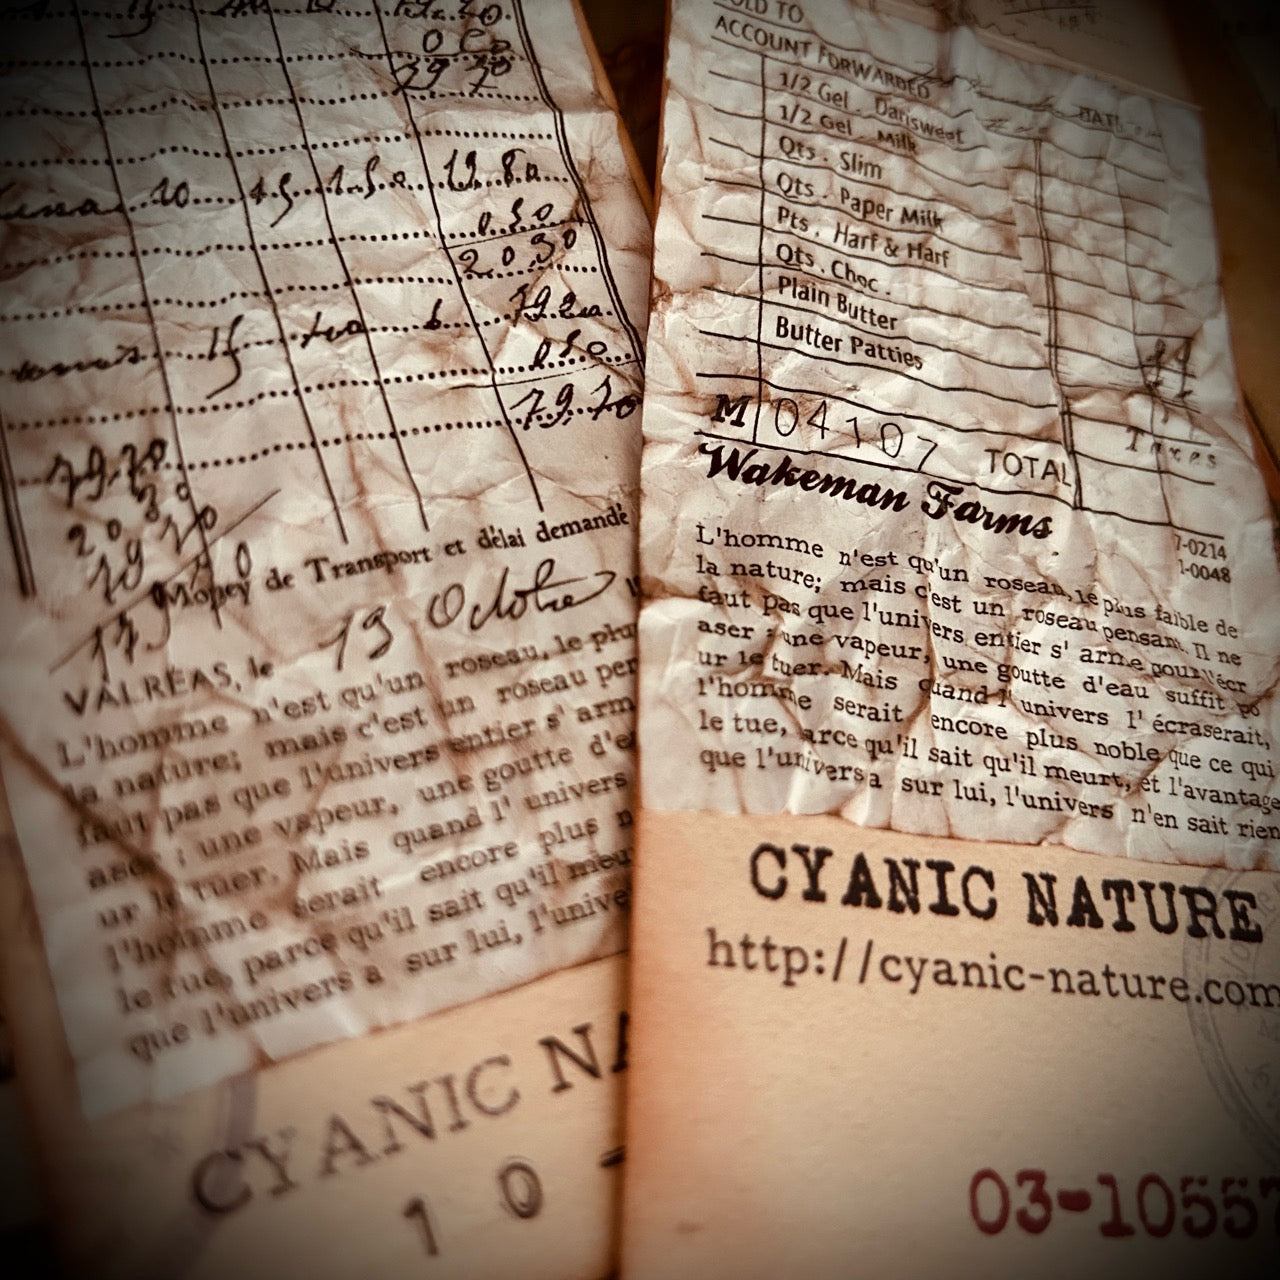 29 70
10 45 1.50 19.80
0.50
20 30
15 6 79.20
0.50
79.70
79.70
20.30
Money de Transport et délai demandé
VALRÉAS, le 13 Octobre
L'homme n'est qu'un roseau, le plu
la nature; mais c'est un roseau pen
faut pas que l'univers entier s' arm
aser : une vapeur, une goutte d'e
ur le tuer. Mais quand l' univers
l'homme serait encore plus n
le tue, parce qu'il sait qu'il meu
que l'univers a sur lui, l'unive
CYANIC NA
1 0 -
OLD TO
ACCOUNT FORWARDED
1/2 Gel . Darisweet
1/2 Gel . Milk
Qts . Slim
Qts . Paper Milk
Pts . Harf & Harf
Qts . Choc .
Plain Butter
Butter Patties
M 04107 TOTAL
Wakeman Farms
7-0214
1-0048
L'homme n'est qu'un roseau, le plus faible de
la nature; mais c'est un roseau pensant. Il ne
faut pas que l'univers entier s' arme pour l'écr
aser : une vapeur, une goutte d'eau suffit po
ur le tuer. Mais quand l'univers l' écraserait,
l'homme serait encore plus noble que ce qui
le tue, arce qu'il sait qu'il meurt, et l'avantage
que l'univers a sur lui, l'univers n'en sait rien
CYANIC NATURE
http://cyanic-nature.com
03-10557